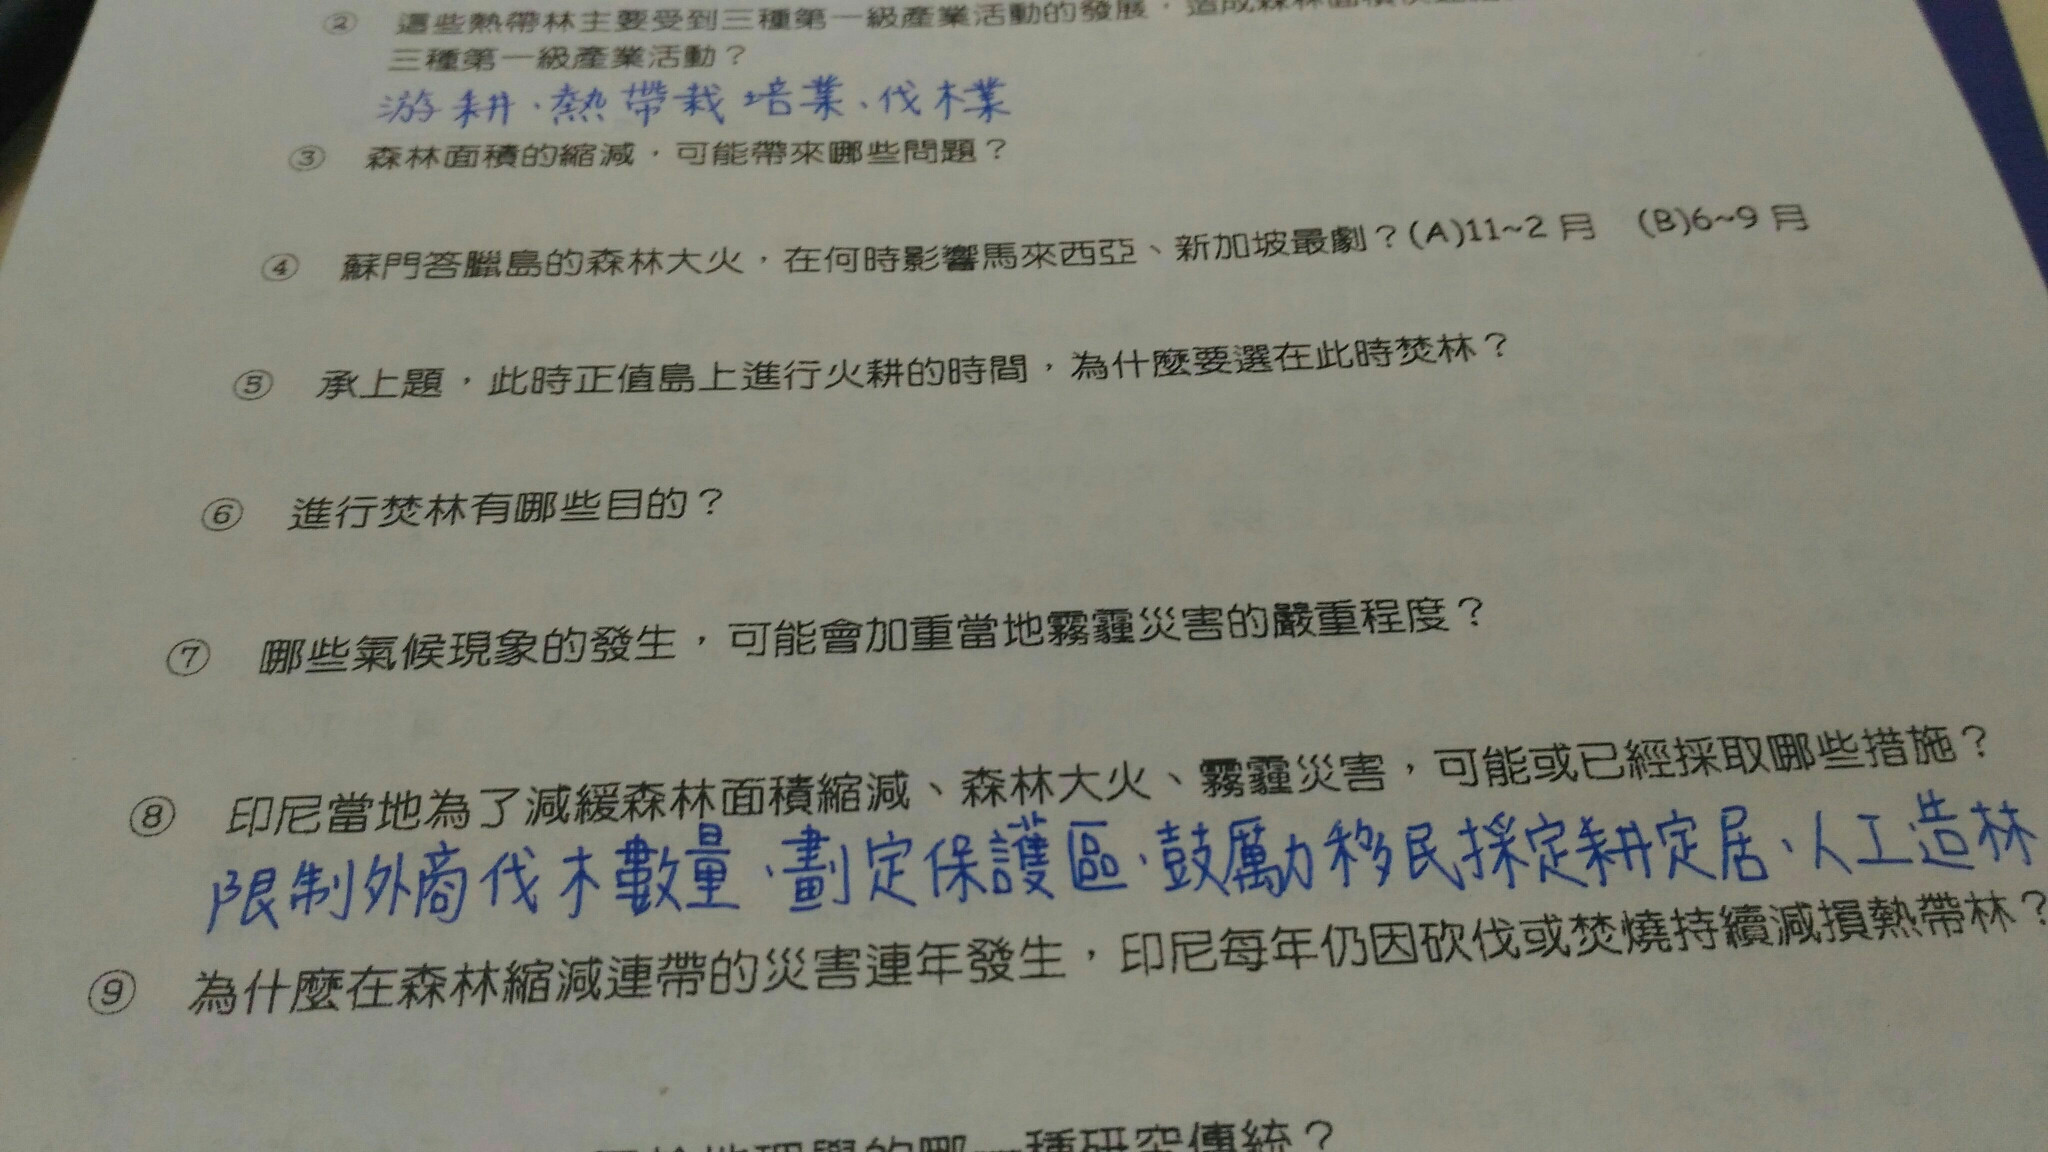 ② 這些熱帶林主要受到三種第一級產業活動的發展，造成森林面積
三種第一級產業活動？
游耕、熱帶栽培業、伐木業
③ 森林面積的縮減，可能帶來哪些問題？
④ 蘇門答臘島的森林大火，在何時影響馬來西亞、新加坡最劇？(A)11~2月 (B)6~9月
⑤ 承上題，此時正值島上進行火耕的時間，為什麼要選在此時焚林？
⑥ 進行焚林有哪些目的？
⑦ 哪些氣候現象的發生，可能會加重當地霧霾災害的嚴重程度？
⑧ 印尼當地為了減緩森林面積縮減、森林大火、霧霾災害，可能或已經採取哪些措施？
限制外商伐木數量、劃定保護區、鼓勵移民採定耕定居、人工造林
⑨ 為什麼在森林縮減連帶的災害連年發生，印尼每年仍因砍伐或焚燒持續減損熱帶林？
地理學的哪一種研究傳統？